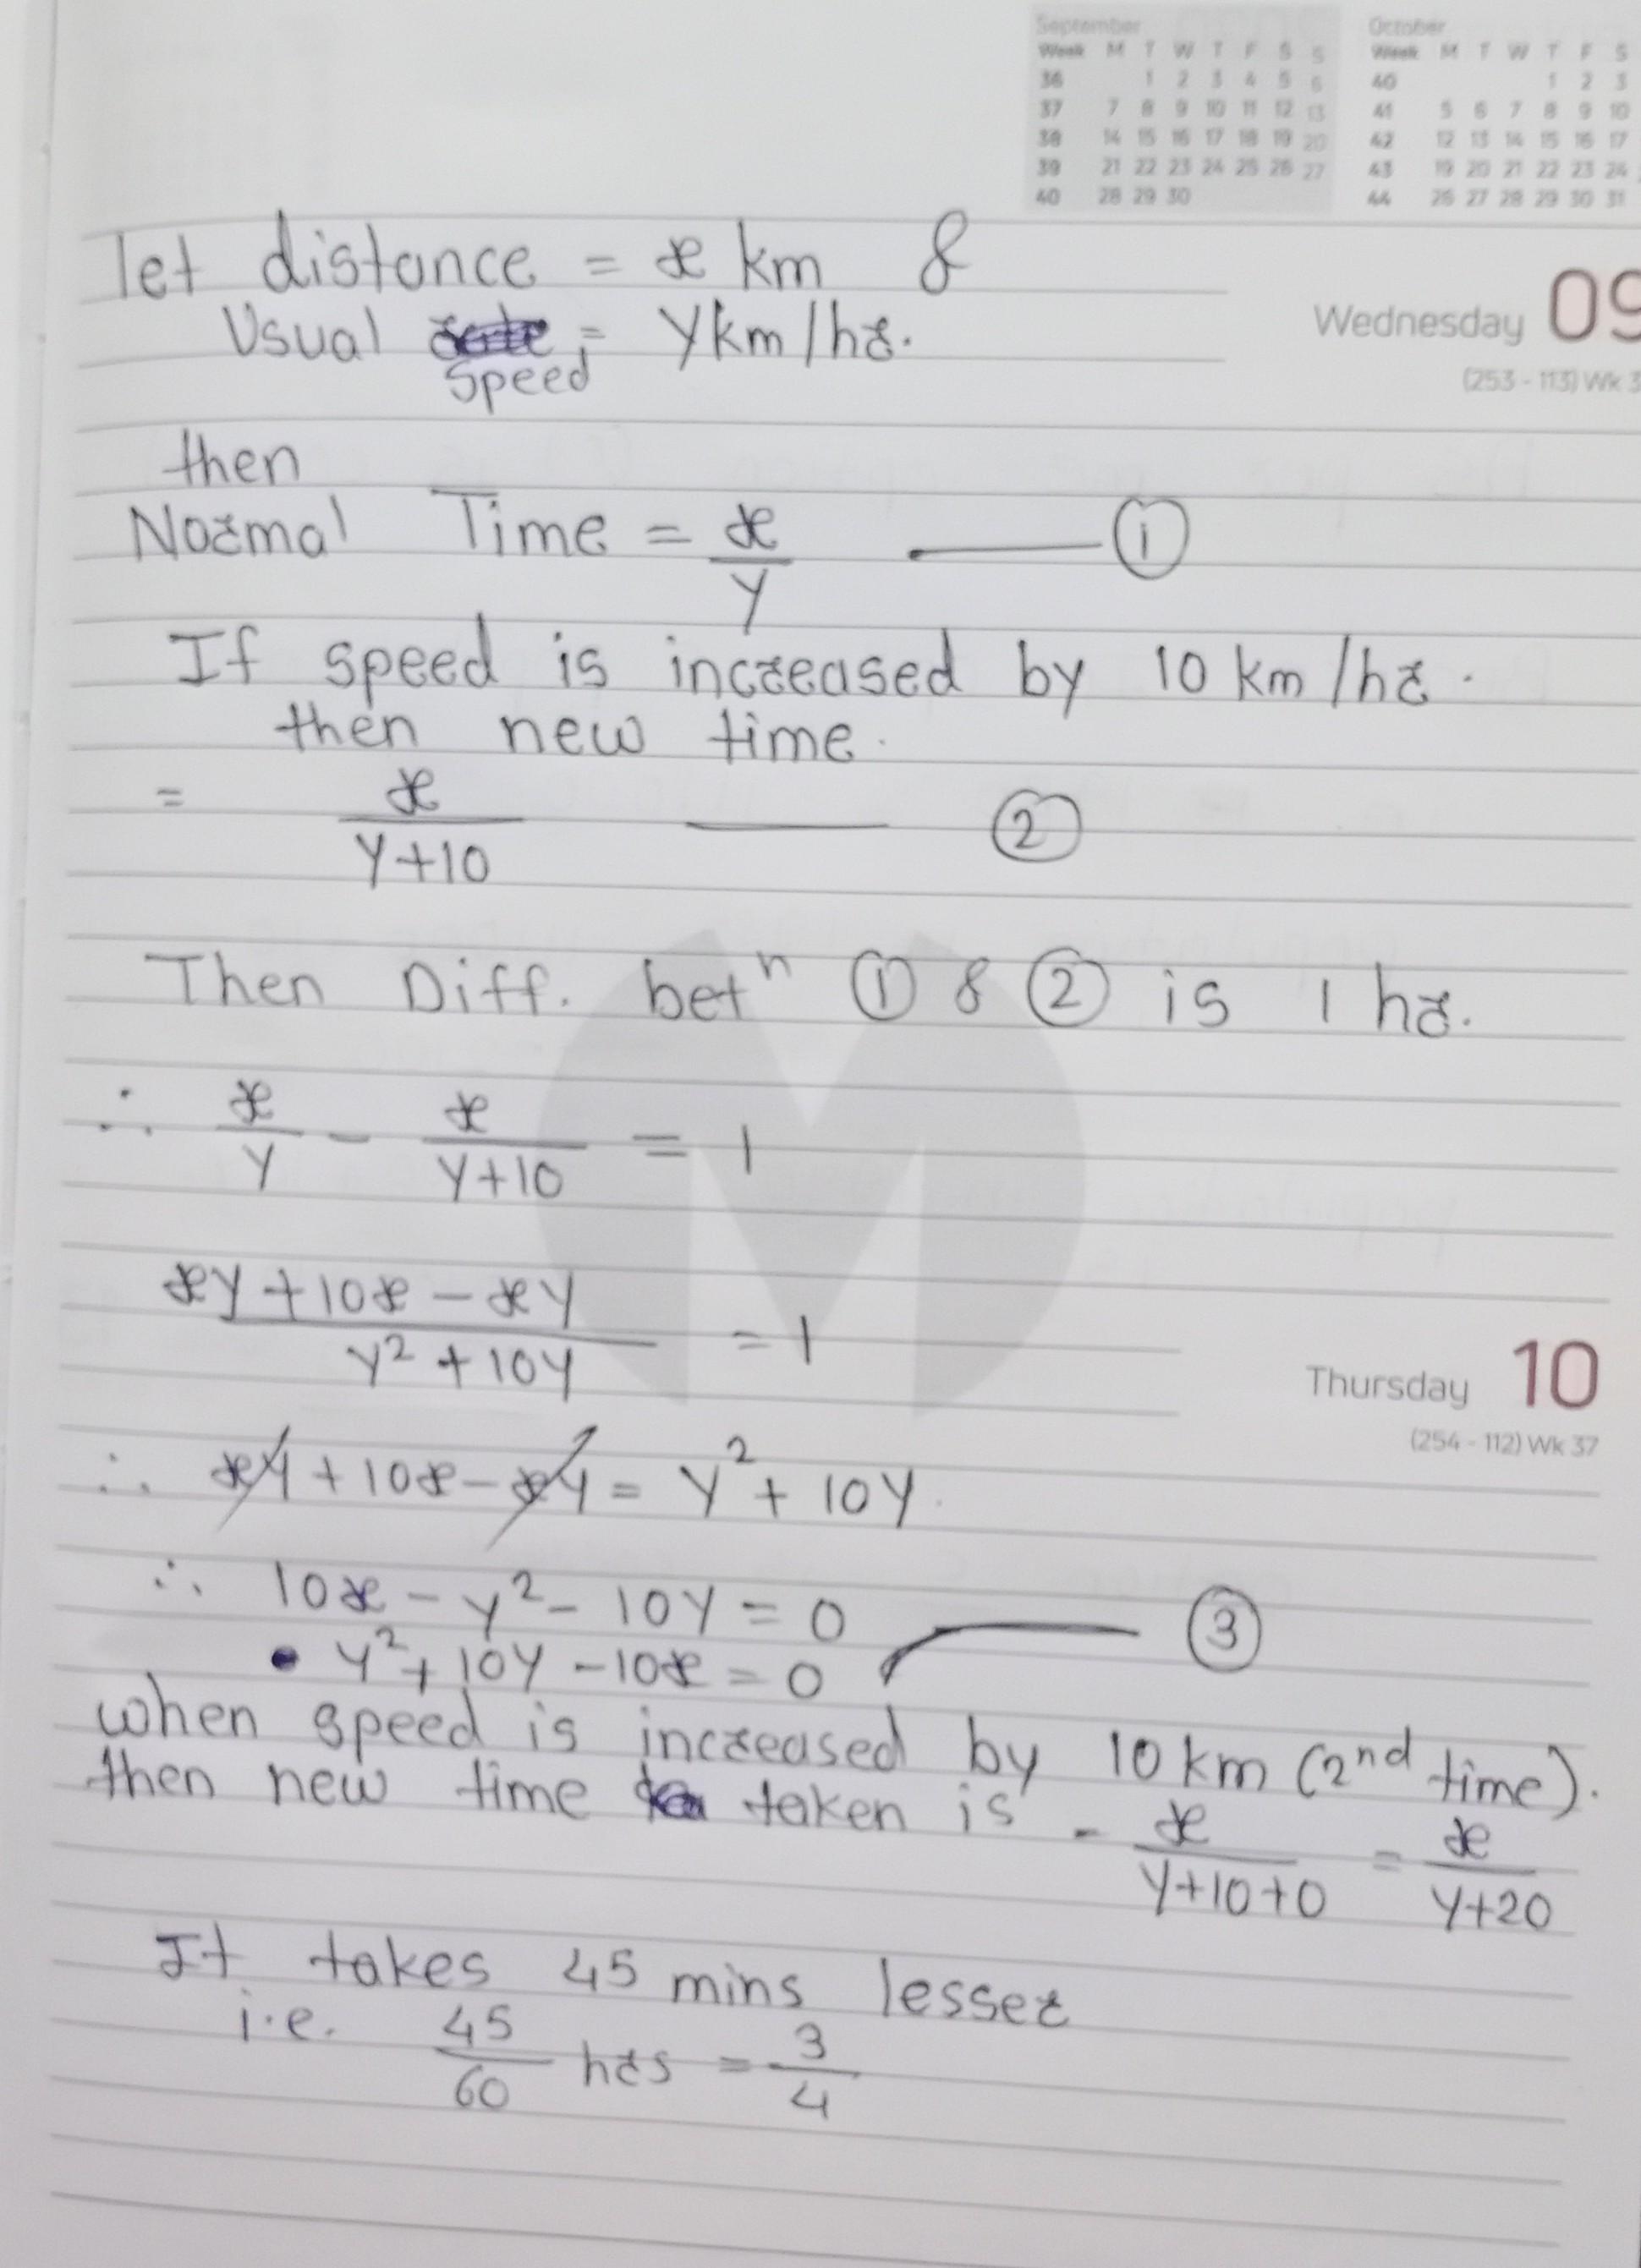 September
Week M T W T F S S
36 1 2 3 4 5 6
37 7 8 9 10 11 12 13
38 14 15 16 17 18 19 20
39 21 22 23 24 25 26 27
40 28 29 30
October
Week M T W T F S
40 1 2 3
41 5 6 7 8 9 10
42 12 13 14 15 16 17
43 19 20 21 22 23 24
44 26 27 28 29 30 31
let distance = x km &
Usual = y km/hr.
Speed
Wednesday 09
(253 - 113) Wk 3
then
Normal Time = x/y —— ①
If speed is increased by 10 km/hr.
then new time.
= x/(y+10) —— ②
Then Diff. betⁿ ① & ② is 1 hr.
∴ x/y - x/(y+10) = 1
(xy + 10x - xy)/(y² + 10y) = 1
Thursday 10
(254 - 112) Wk 37
∴ xy + 10x - xy = y² + 10y.
∴ 10x - y² - 10y = 0 —— ③
y² + 10y - 10x = 0
when speed is increased by 10 km (2nd time).
then new time taken is - x/(y+10+0) = x/(y+20)
It takes 45 mins lesser
i.e. 45/60 hrs = 3/4